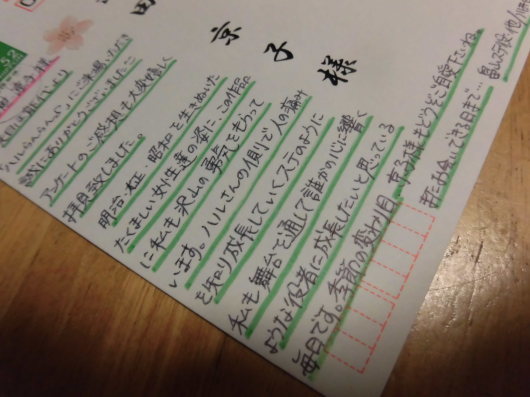 京子様
先日は観劇
ハルちゃん
誠にありがとうございました。
アンケートのご感想も大変嬉しく
拝見致しました。
明治・大正・昭和を生きぬいた
たくましい女性達の姿に、この作品
に私も沢山の勇気をもらって
います。ハルさんの側で人の痛み
を知り成長していくステのように
私も舞台を通して誰かの心に響く
ような役者に成長したいと思っている
毎日です。季節の変わり目、京子様もどうぞご自愛下さいね。
またお会いできる日まで…